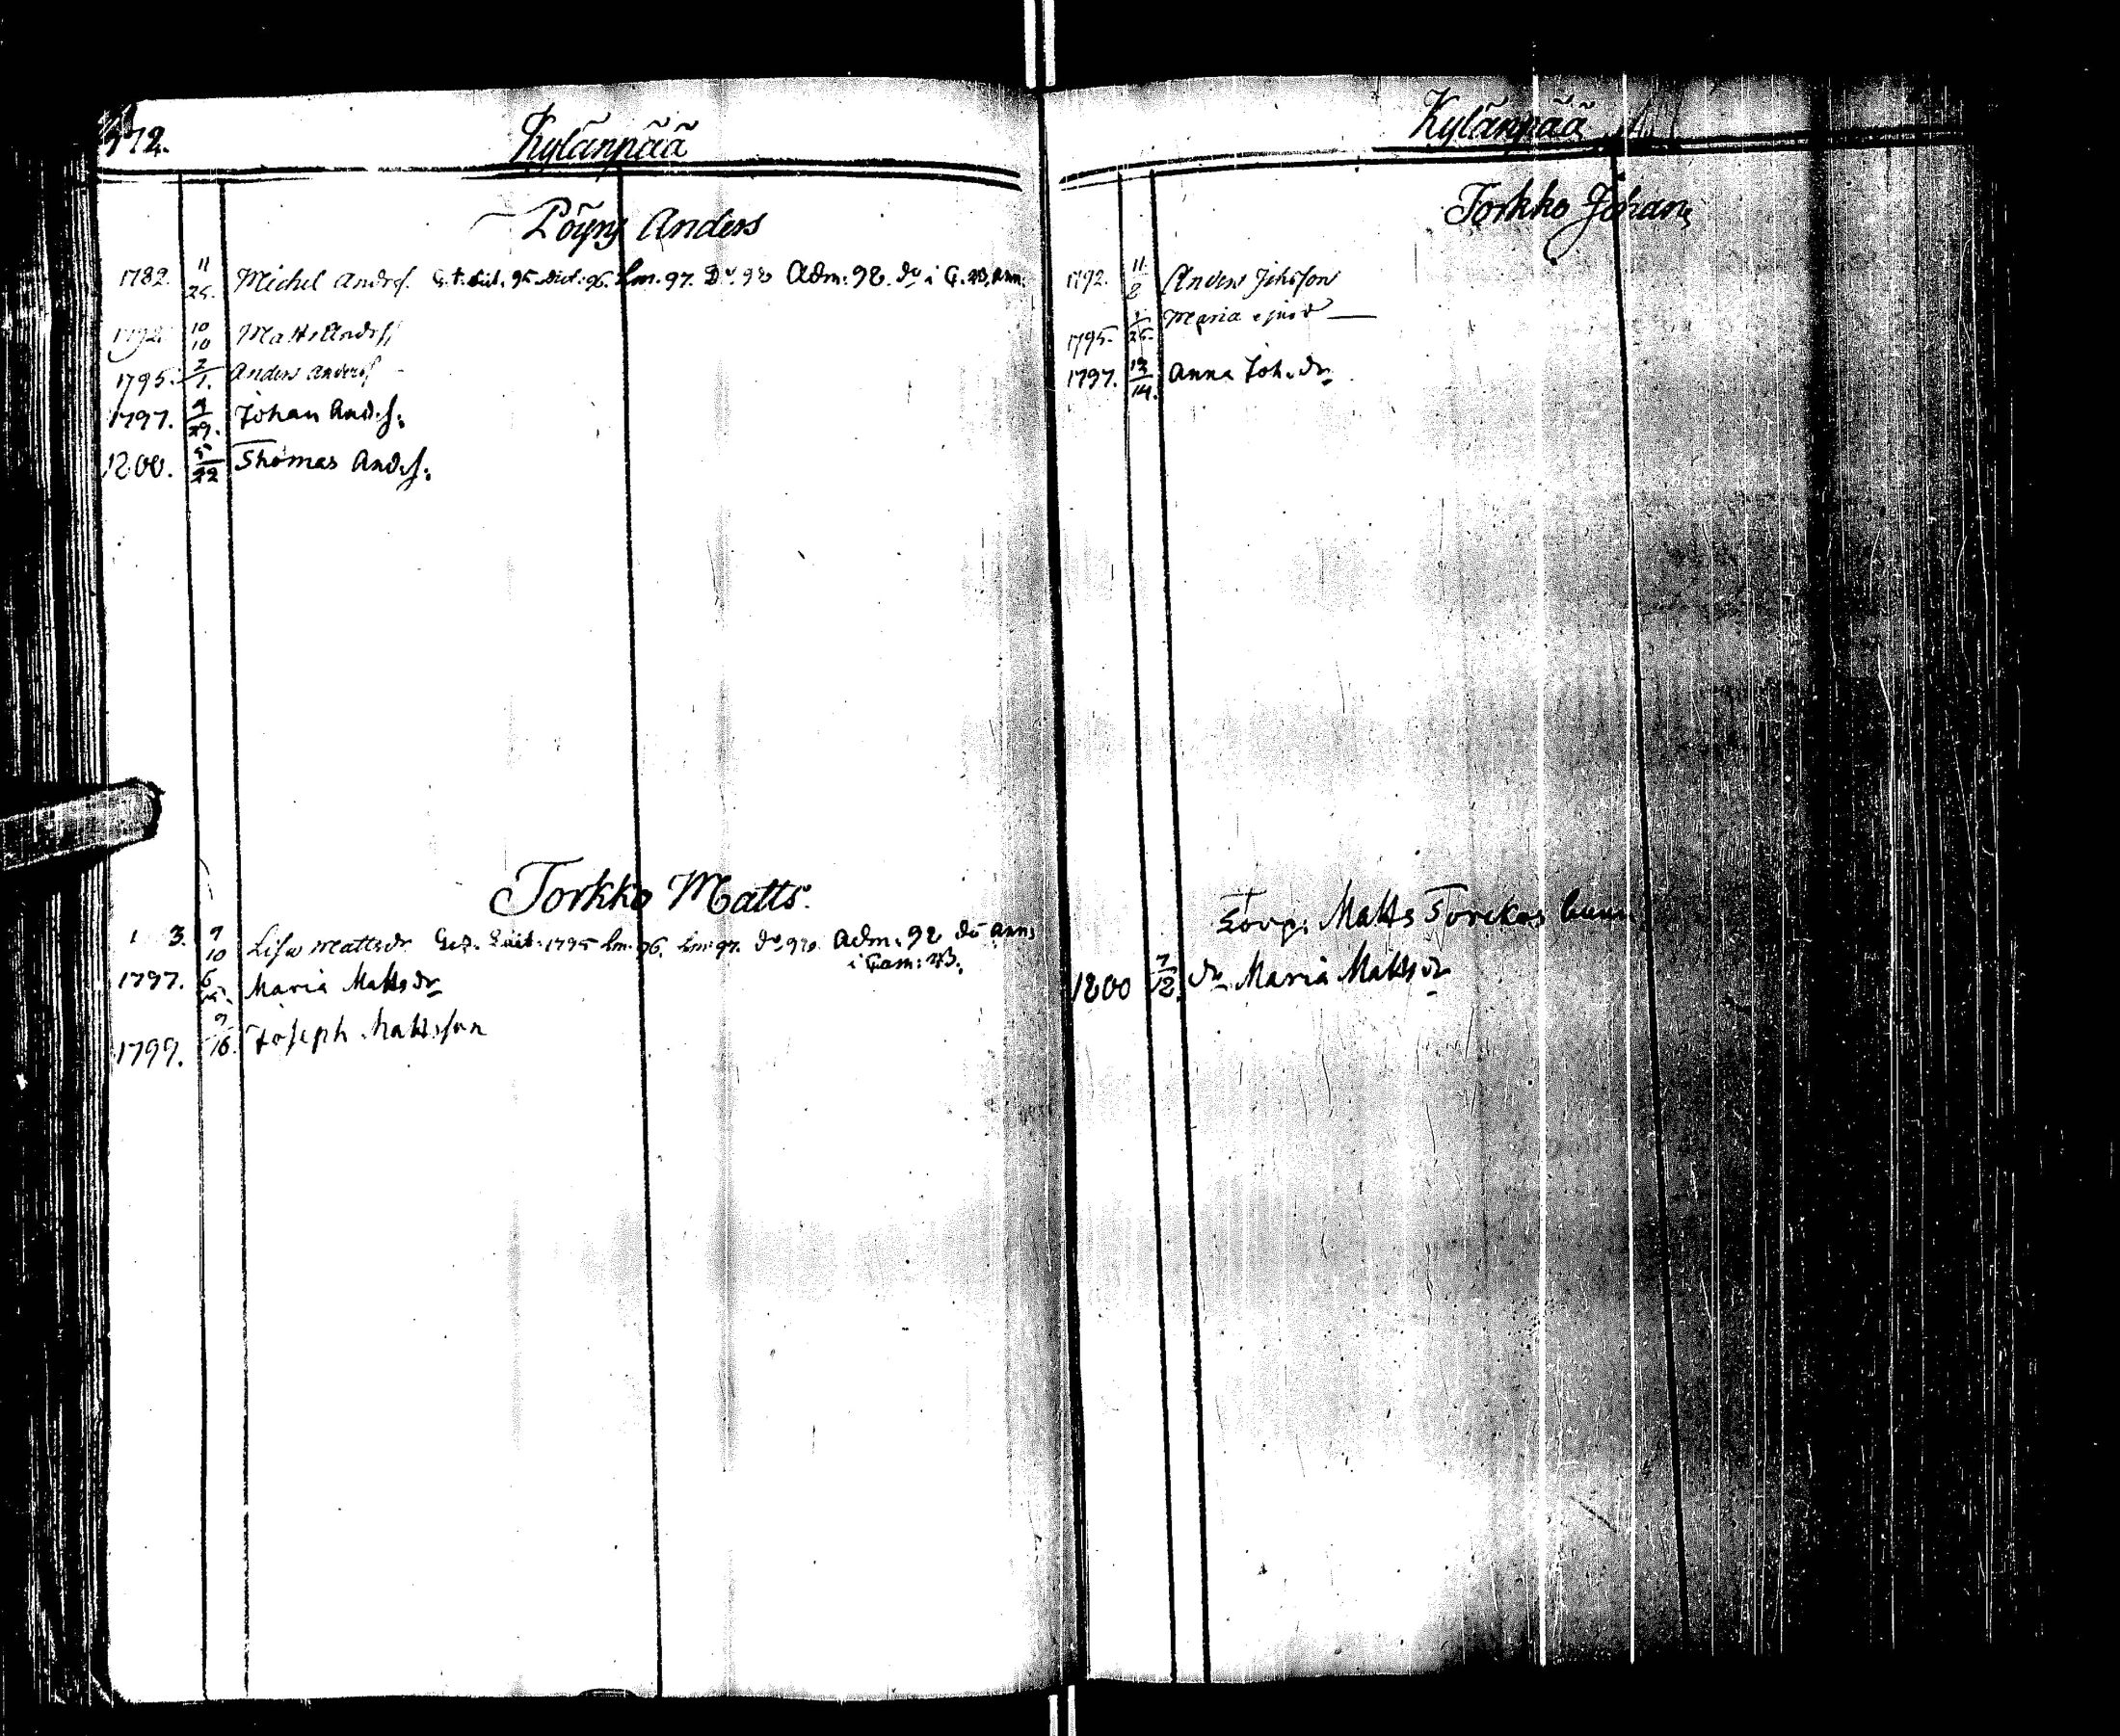 372.
Kylänpää
Pöyry Anders
1782. 11/25. Michel Andrs. 95. 96. Lm. 97. Do 98 Adm: 98. do i G. 
1792. 10/10 Matts Andrs.
1795. 2/1. Anders Anders.
1797. 4/29. Johan And.s.
1800. 5/22 Thomas And.s.
Torkko Matts.
3. 9/10 Lisa Mattsdr 1795 Lm. 96. Lm: 97. do 98. Adm: 98 do anns
i Gam:
1797. 6 Maria Mattsdr
1799. 9/16. Joseph Mattsson
Kylänpää
Torkko Johans
1792. 11/8 Anders Johsson
1795. 25. Maria ejusd
1797. 12/14. Anna Joh.dr
Torp. Matts Torckos barn
1800 7/12. dr Maria Mattsdr